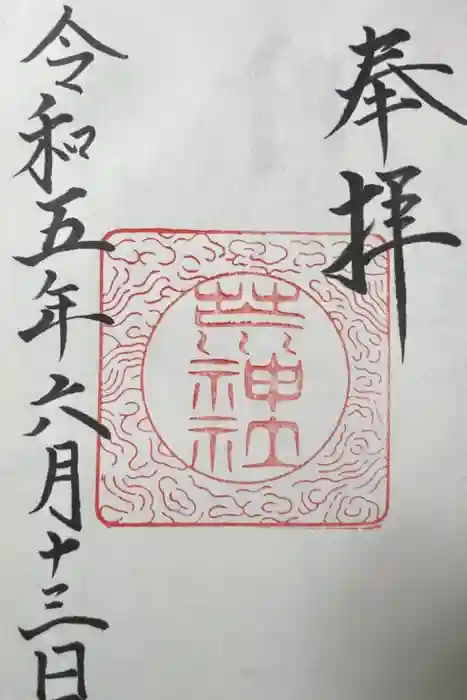 奉拝
神社
令和五年六月十三日